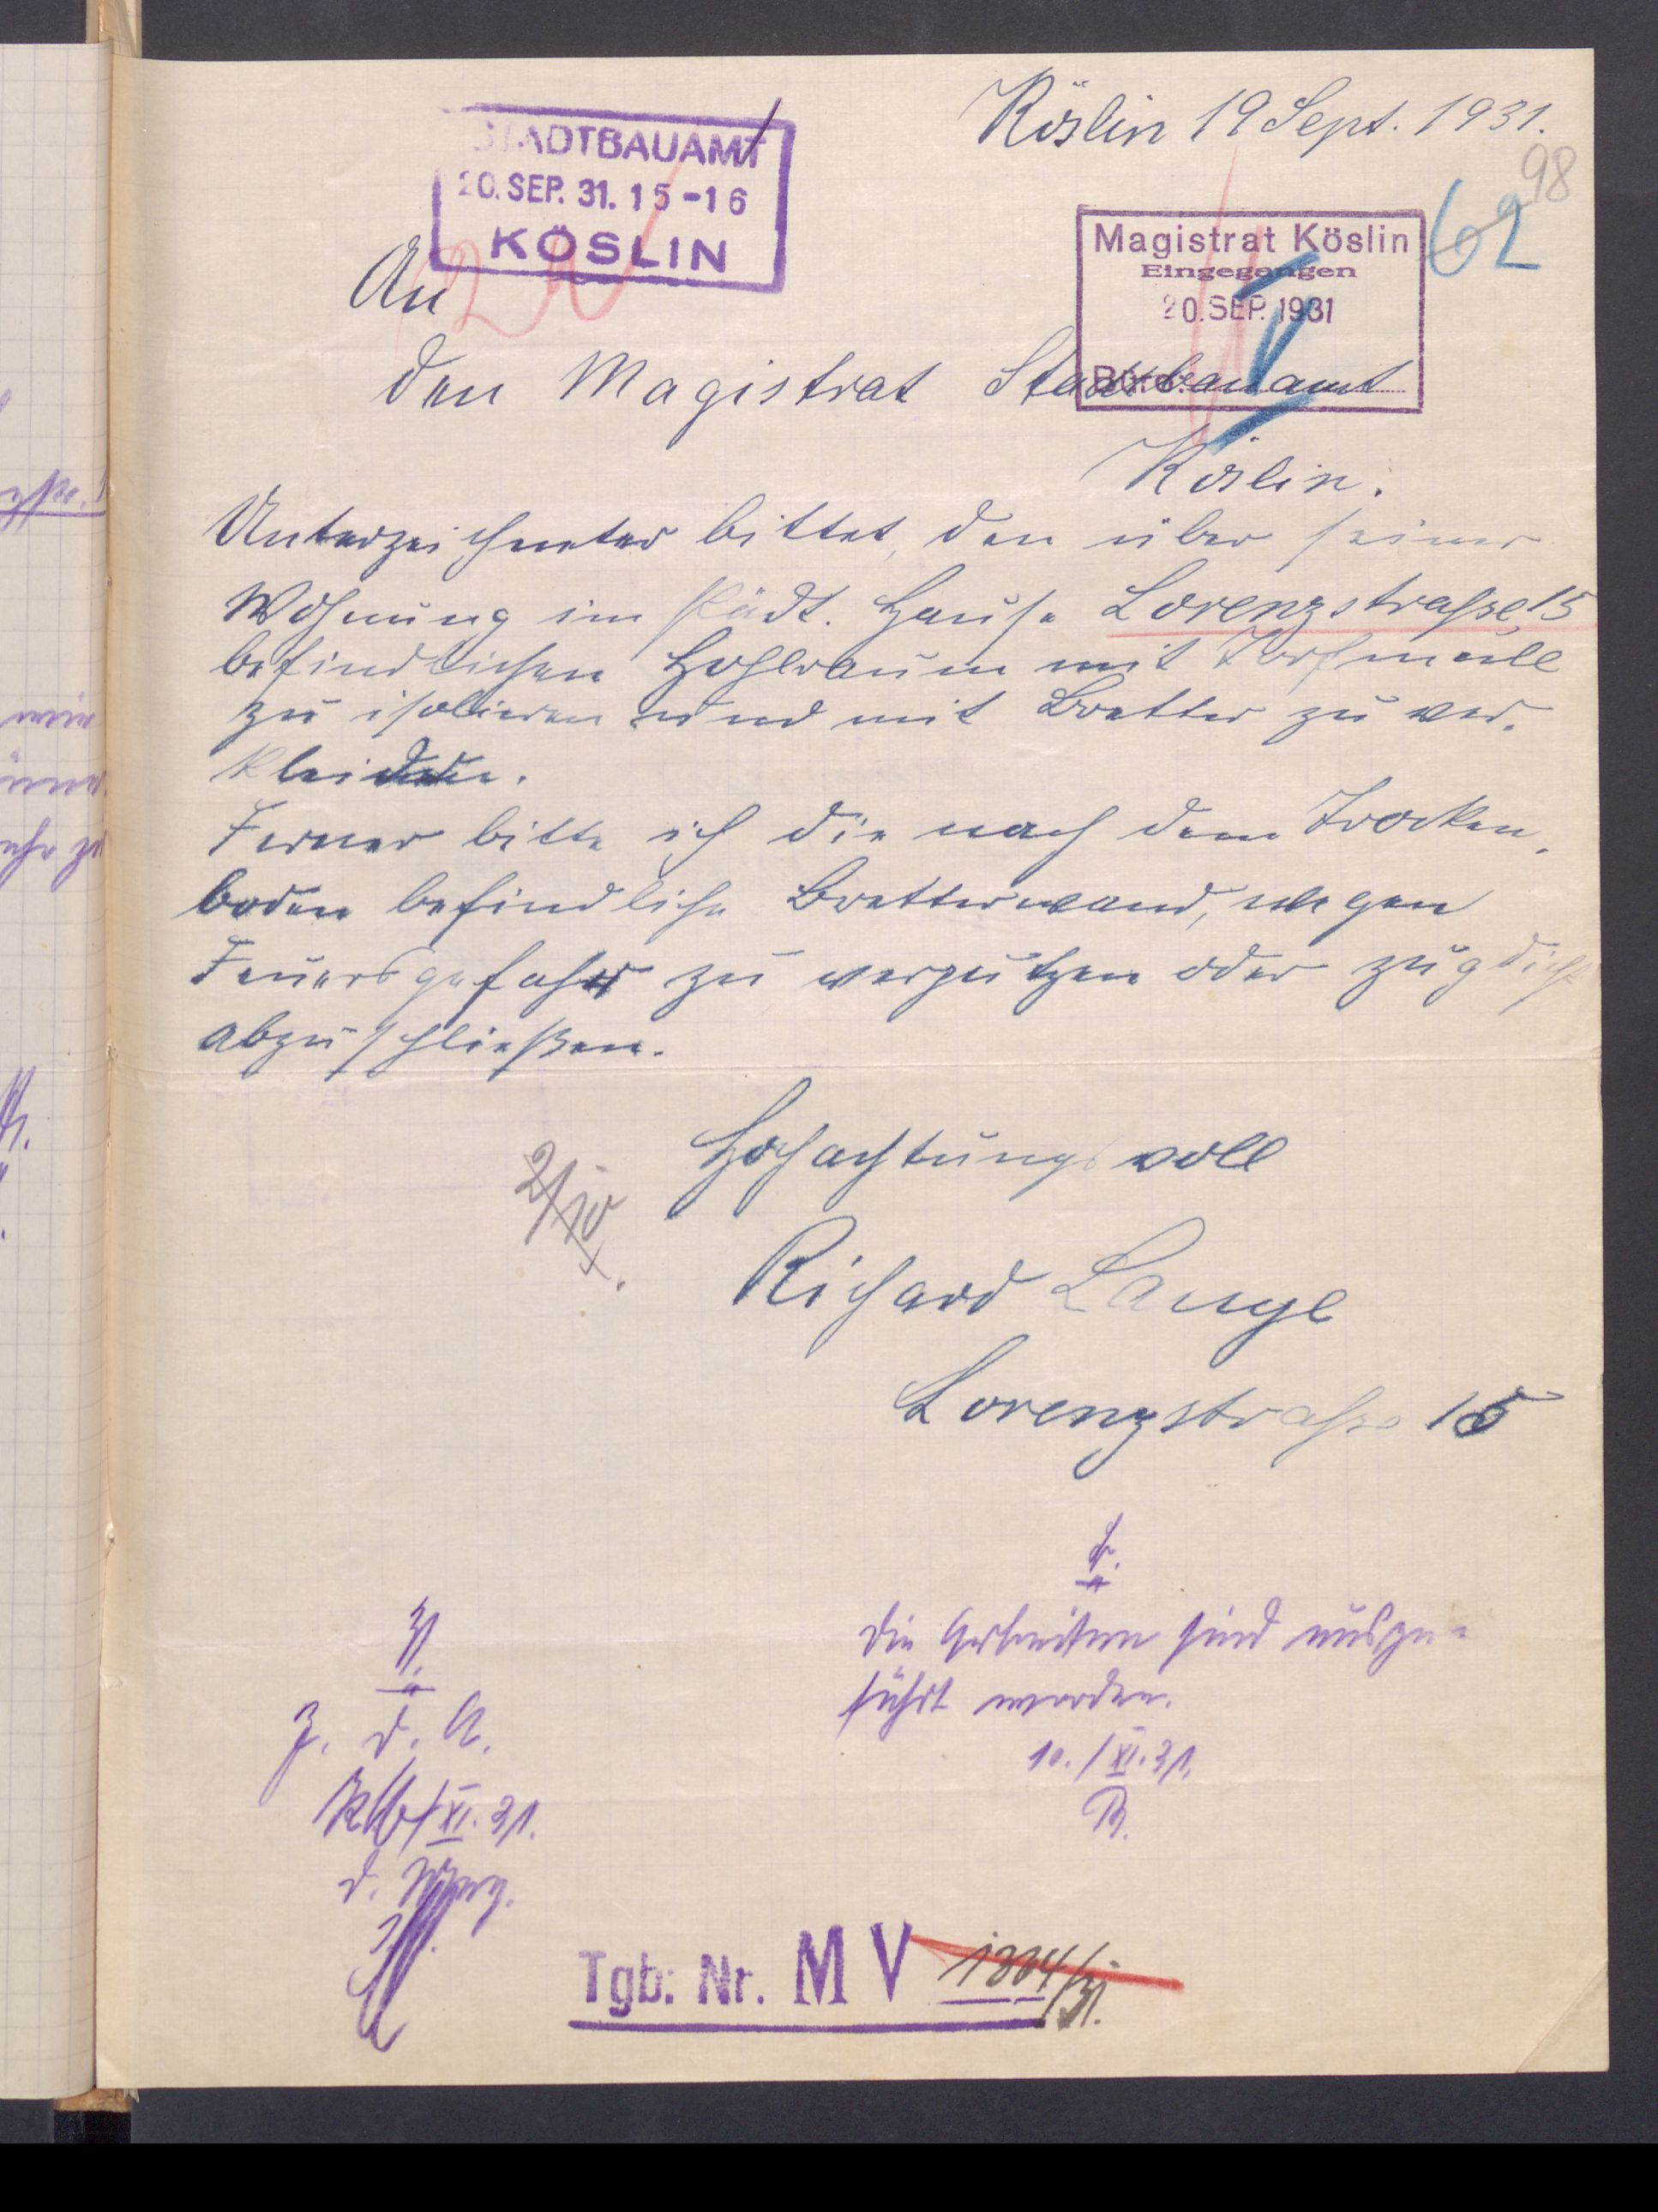 Köslin 19 Sept. 1931.
98
62
STADTBAUAMT
20. SEP. 31. 15-16
KÖSLIN
Magistrat Köslin
Eingegangen
20. SEP. 1931
Büro:
V
An
den Magistrat Stadtbauamt
Köslin.
Unterzeichneter bittet, den über seiner
Wohnung im städt. Hause Lorenzstrasse 15
befindlichen Hohlraum mit Torfmull
zu isolieren und mit Bretter zu ver-
kleiden.
Ferner bitte ich die nach dem Trocken-
boden befindliche Bretterwand, wegen
Feuersgefahr zu verputzen oder zugdicht
abzuschließen.
Hochachtungsvoll
Richard Lange
Lorenzstrasse 15
Die Arbeiten sind ausge-
führt worden.
10./XI.31.
z. d. A.
XI. 31.
d. Mag.
Tgb: Nr. M V 1304/31.